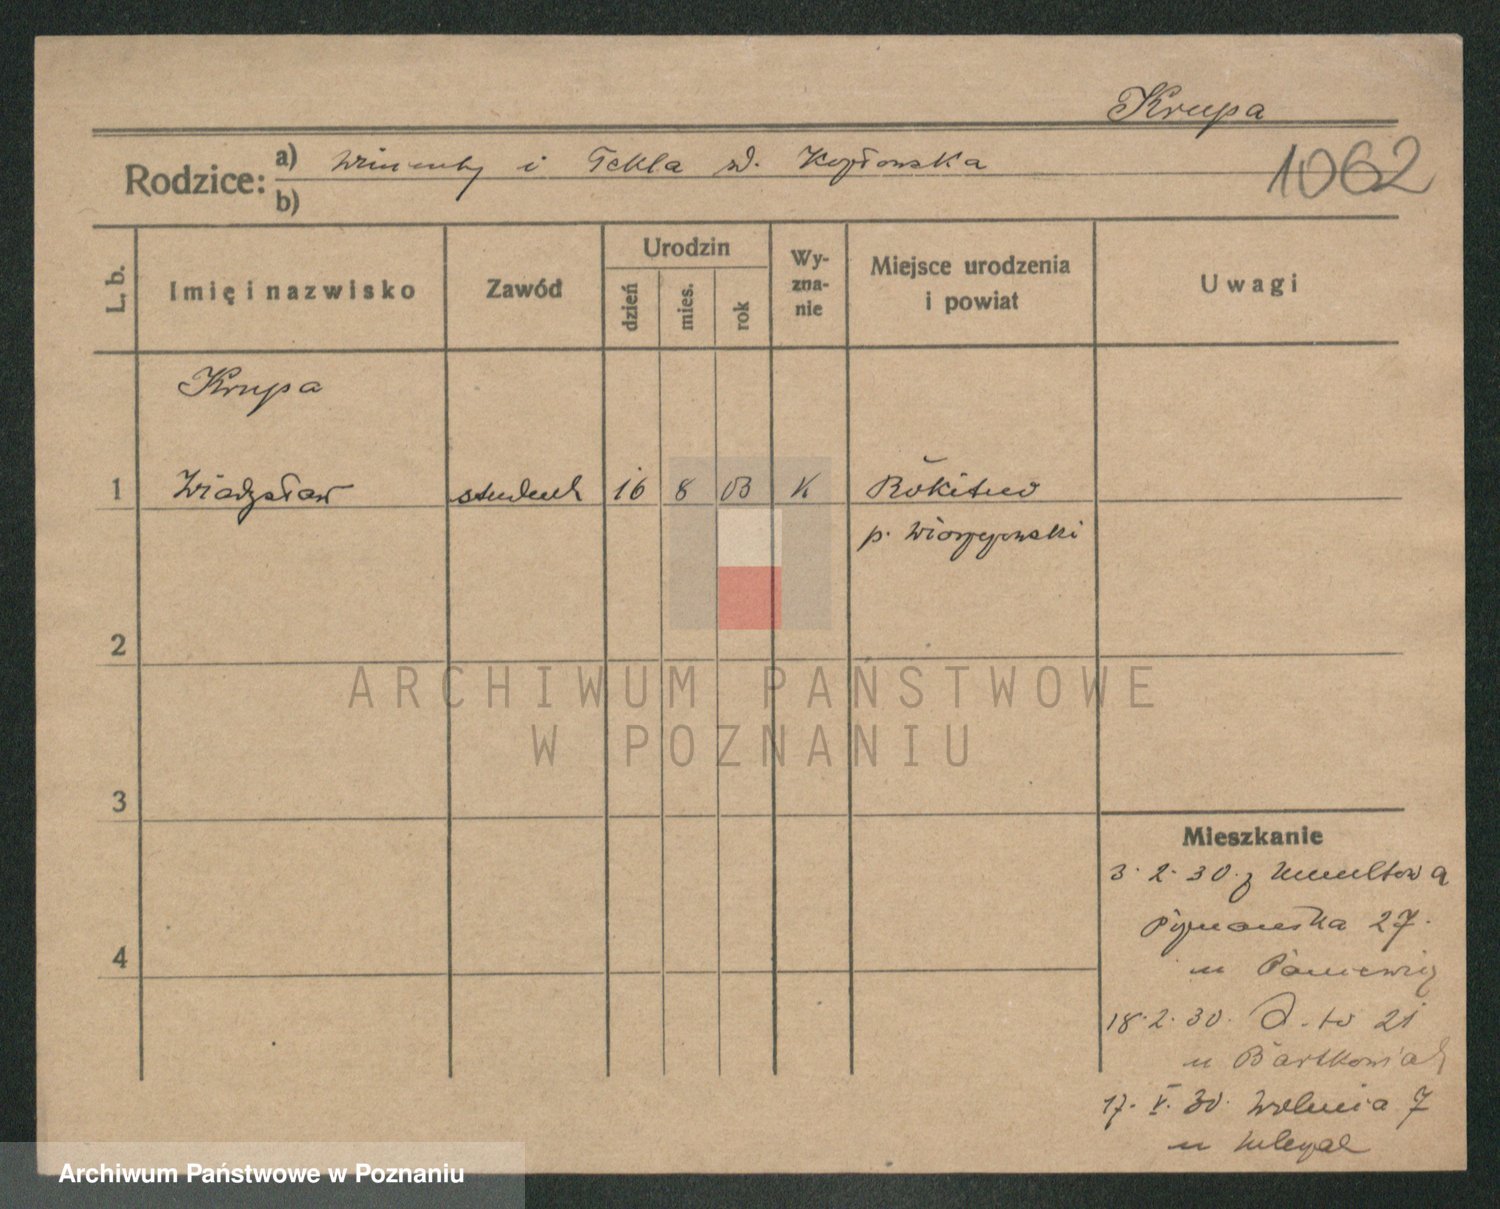 Krupa
Rodzice: a) Wincenty i Tekla zd. Kozłowska
b)
1062
L. b. Imię i nazwisko Zawód Urodzin dzień mies. rok Wy-zna-nie Miejsce urodzenia i powiat Uwagi
Krupa
1 Władysław student 16 8 03 K Rokitno
p. Włoszczowski
2
3
4
Mieszkanie
3. 2. 30. z Umultowa
27.
u
18. 2. 30. 21
u Bartkowiak
17. V. 30. Wolnica 7
u
ARCHIWUM PAŃSTWOWE
W POZNANIU
Archiwum Państwowe w Poznaniu